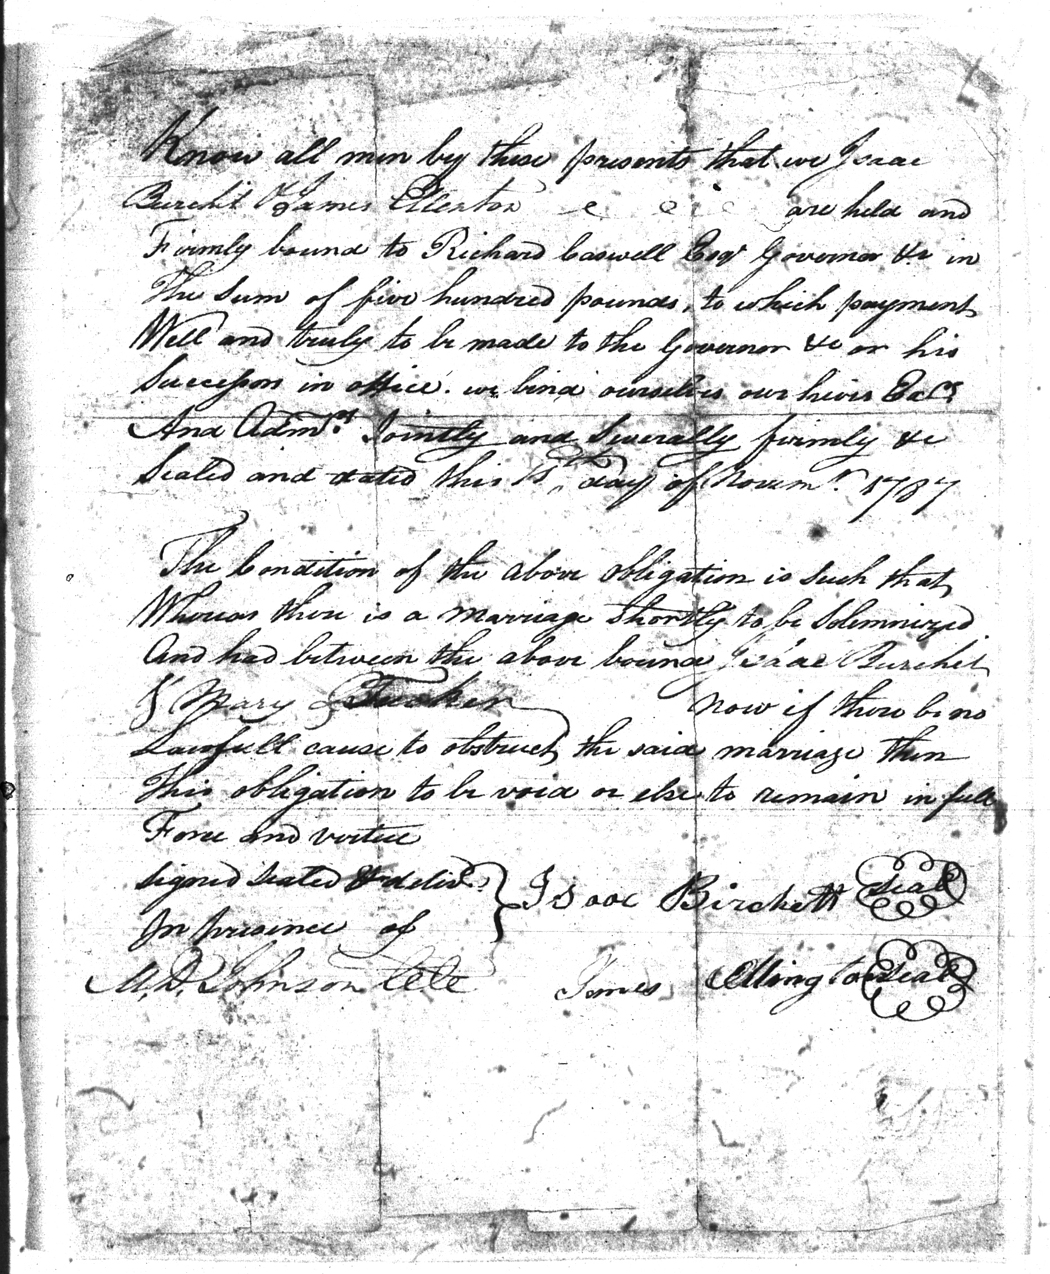 Know all men by these presents that we Isaac
Burchit & James Ellenton are held and
Firmly bound to Richard Caswell Esqr Governor &c in
The Sum of five hundred pounds, to which payment
Well and truly to be made to the Governor &c or his
Successors in office. we bind ourselves our heirs Excs
And Admrs Jointly and Severally firmly &c
Sealed and dated this day of Novemr. 1787
The Condition of the above obligation is Such that
Whereas there is a marriage Shortly to be Solemnized
And had between the above bound Isaac Burchit
& Mary Tucker Now if there be no
Lawfull cause to obstruct the said marriage then
This obligation to be void or else to remain in full
Force and virtue
signed Sealed & delivd
In presence of
Isaac Birchett Seal
M. D. Johnson
James Ellington Seal